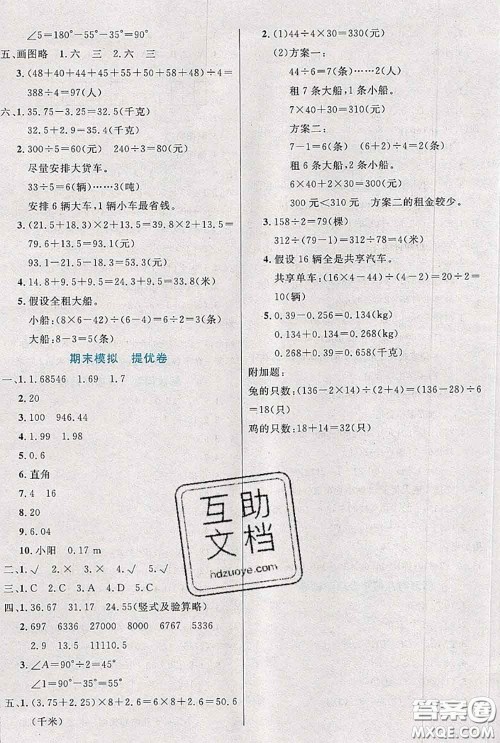 ∠5=180°-55°-35°=90°
五、画图略 1.六 三 2.六 三
3.(48+40+44+45+55+50+58+48)÷4=
388÷4=97(人)
六、1.35.75-3.25=32.5(千克)
32.5+2.9=35.4(千克)
2.300÷5=60(元) 240÷4=60(元)
尽量安排大货车。
33÷5=6(辆)……3(吨)
安排6辆大车,1辆小车最省钱。
3.(27.9+13.5)-(2+1.5)+39.8×2+13.5=
79.6+13.5=93.1(元)
93.1-1.8-21.5-16.5=53.3(元)
4.14.8+9.5+9.5=24.3+9.5=33.8(米)
5.假设全租大船。
小船:(8×6-42)÷(6-4)=6÷2=3(条)
大船:8-3=5(条)
期末模拟 提优卷
一、1.1.68546 1.69 1.7
2.20
3.100 946.44
4.1.99 1.98
5.20
6.直角
7.4 16
8.20
9.6.04
10.小阳 0.17 m
二、1.√ 2.× 3.× 4.√ 5.√
三、1.C 2.A 3.C 4.A 5.C
四、1.36.67 31.17 24.55(竖式及验算略)
2.690 6336 27000 8000 6767
2.9 13.9 11110.5
3.∠A=90°÷2=45°
∠1=90°-35°=55°
五、1.(3.75+2.25)×6+2.6=6×8+2.6=50.6
(千米)
2.(1)44÷4×30=330(元)
(2)方案一:
44÷6=7(条)……2(人)
租7条大船,1条小船。
7×40+30=310(元)
方案二:
7-1=6(条) (6+2)÷4=2(条)
租6条大船,2条小船。
6×40+2×30=300(元)
300元<310元 方案二的租金较少。
3.158÷2=79(棵)
312÷(79-1)=312÷78=4(米)
4.假设16辆全是共享汽车。
共享单车:(16×4-44)÷(4-2)=20÷2=
10(辆)
5.0.39-0.256=0.134(kg)
0.134+0.134=0.268(kg)
0.268+0.39=0.658(千克)
附加题:
兔的只数:(136-2×14)÷(2+4)=(136-28)÷6
=18(只)
鸡的只数:18+14=32(只)
互助
文档
hdzuoye.com
答案圈
MXQE.COM